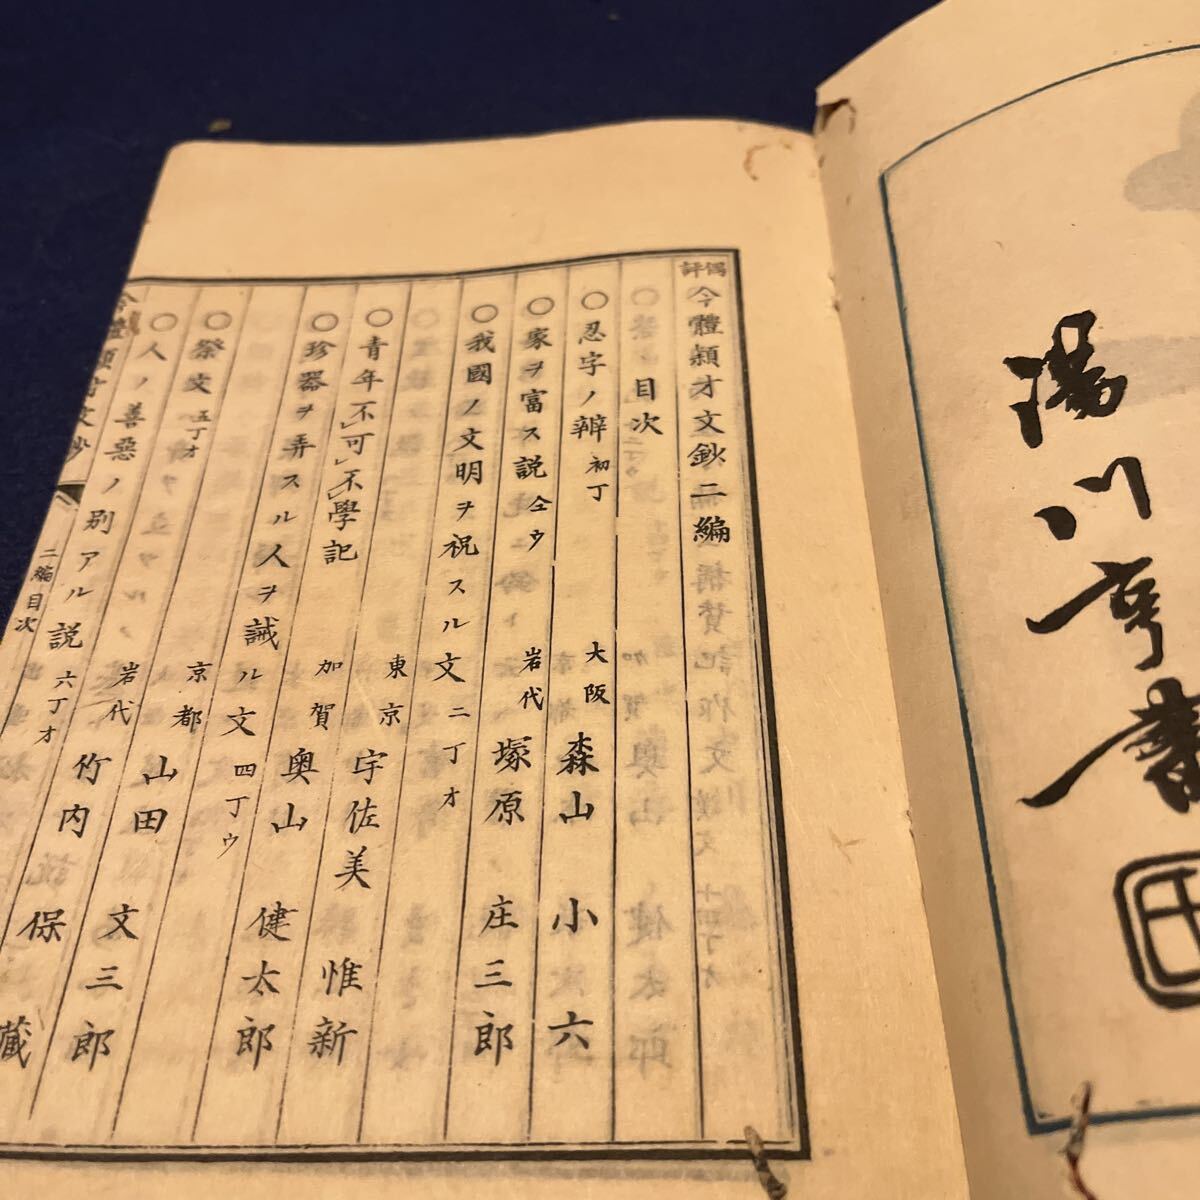 湯川亨書
偶評
今體穎才文鈔二編
目次
○忍字ノ辨 初丁
大阪 森山 小六
○家ヲ富ス說 仝ウ
岩代 塚原 庄三郎
○我國ノ文明ヲ祝スル文 二丁オ
東京 宇佐美 惟新
○青年不可不學記
加賀 奥山 健太郎
○珍器ヲ弄スル人ヲ誡ル文 四丁ウ
京都 山田 文三郎
○祭文 五丁オ
岩代 竹内 保藏
○人ノ善惡ノ別アル說 六丁オ
今體穎才文鈔
二編目次